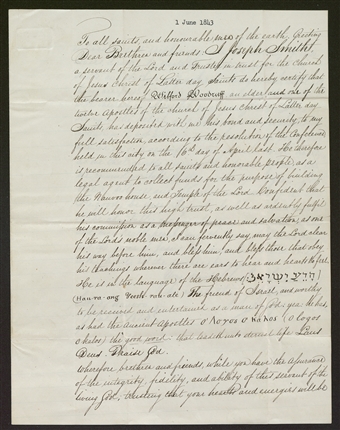 1 June 1843
To all saints and honourable men of the earth, Greeting
Dear Brethren and friends; I Joseph Smith,
a servant of the Lord and Trustee in trust for the Church
of Jesus Christ of Latter day Saints do hereby certify that
the bearer hereof, Wilford Woodruff an elder and one of the
twelve Apostles of the church of Jesus Christ of Latter day
Saints has deposited with me his bond and security, to my
full satisfaction, according to the resolution of the Conference
held in this city on the 6th day of April last. He therefore
is recommended to all saints and honorable people as a
legal agent to collect funds for the purpose of building
the Nauvoo house and Temple of the Lord. Confident that
he will honor this high trust, as well as ardently fulfil
his commission as a messenger of peace and salvation, as one
of the Lord's noble men, I can fervently say, may the Lord clear
his way before him, and bless him, and bless those that obey
his teachings wherever there are ears to hear and hearts to feel.
He is in the language of the Hebrews
The friend of Israel, and worthy
to be received and entertained as a man of God; yea he has,
as had the ancient Apostles O Λογος ο καλος (O logos
o kalos) the good word that leadeth unto eternal life. Laus
Deus. Praise God.
Wherefore brethren and friends, while you have the assurance
of the integrity, fidelity, and ability of this servant of the
living God, trusting that your hearts and energies will be